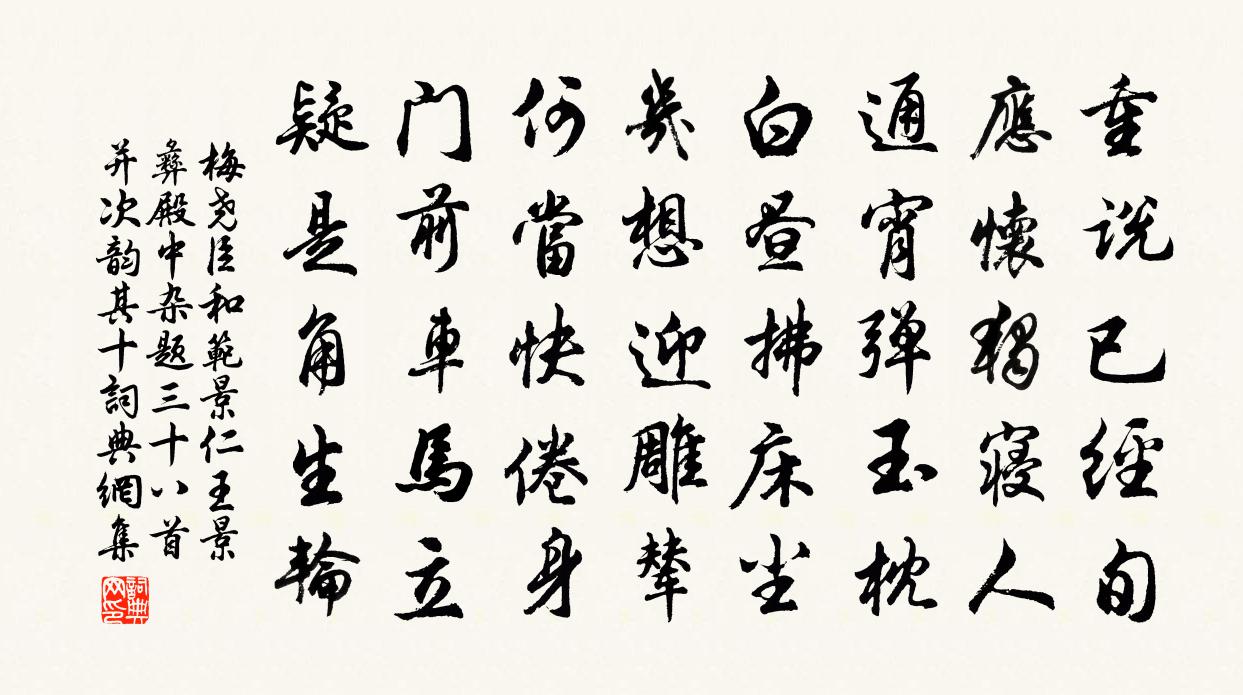 重说已經旬
應懷獨寝人
通宵弹玉枕
白昼拂床尘
幾想迎雕輦
何當快倦身
门前車馬立
疑是角生輪
梅尧臣和範景仁王景
彝殿中杂题三十八首
并次韵其十詞典網集
詞典网印